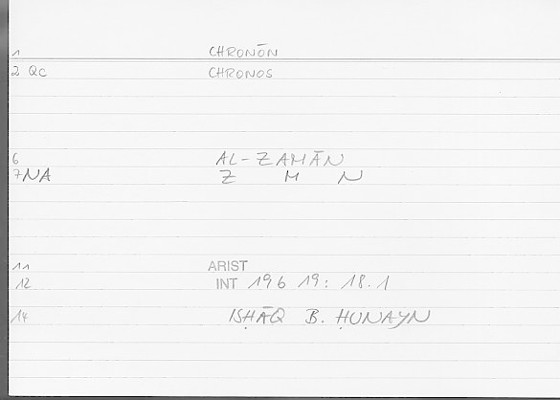 1 CHRONŌN
2 QC CHRONOS
6 AL-ZAMĀN
7NA Z M N
11 ARIST
12 INT 196 19: 18.1
14 ISḤĀQ B. ḤUNAYN